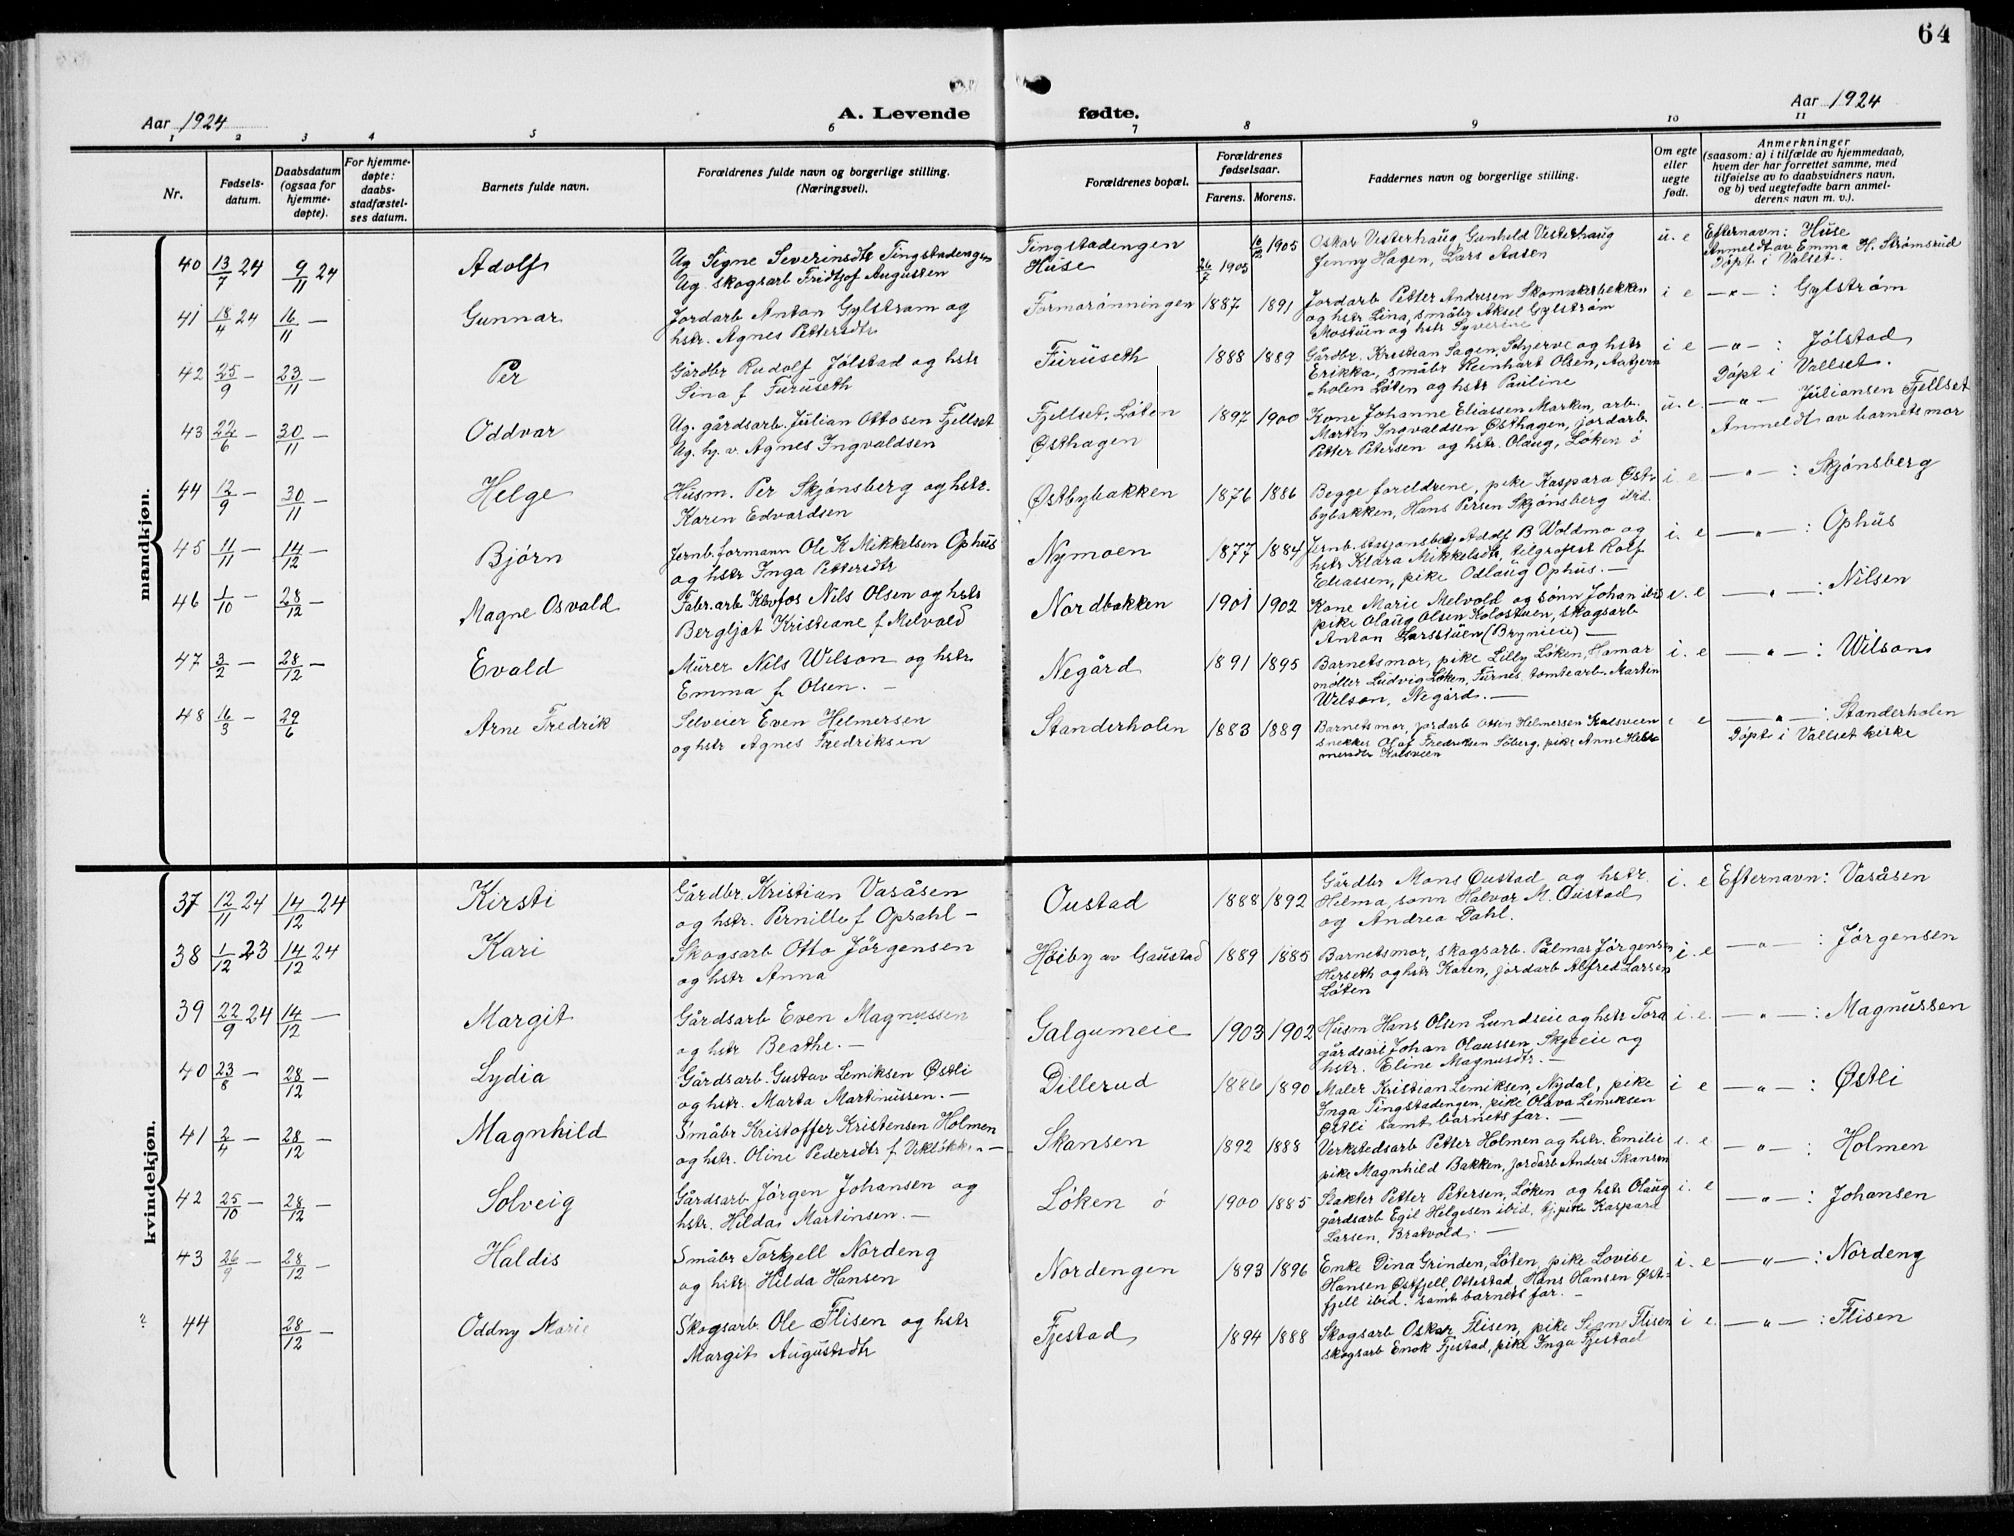 64
Aar 1924
A. Levende fødte.
Aar 1924
1 2 3 4 5 6 7 8 9 10 11
Nr.
Fødsels-
datum.
Daabsdatum
(ogsaa for
hjemme-
døpte).
For hjemme-
døpte:
daabs-
stadfæstel-
ses datum.
Barnets fulde navn.
Forældrenes fulde navn og borgerlige stilling.
(Næringsvei).
Forældrenes bopæl.
Forældrenes
fødselsaar.
Farens. Morens.
Faddernes navn og borgerlige stilling.
Om egte
eller
uegte
født.
Anmerkninger
(saasom: a) i tilfælde av hjemmedaab,
hvem der har forrettet samme, med
tilføielse av to daabsvidners navn,
og b) ved uegtefødte barn anmel-
derens navn m. v.).
mandkjøn.
40 13/7 24 9/11 24 Adolf
Ug Signe Severinsdtr Tingstadengen
Ug. skogsarb Fridtjof Augustsen
Tingstadengen
Huse
26/7 1903 10/2 1905
Oskar Vesterhaug Gunhild Vesterhaug
Jenny Hagen, Lars Aasen
u. e
Efternavn: Huse
Anmeldt av Emma H. Strømsrud
Døpt i Valset.
41 18/4 24 16/11 — Gunnar
Jordarb Anton Gylstrøm og
hstr. Agnes Pettersdtr
Formarønningen 1887 1891
Jordarb Petter Andresen Skomakerbekken
og hstr Lina, småbr Aksel Gylstrøm
Mostuen og hstr Syverine
i e —"— : Gylstrøm
42 25/9 — 23/11 — Per
Gårdbr Rudolf Jølstad og hstr
Sina f Furuseth
Furuseth 1888 1889
Gårdbr. Kristian Sagen, Skjerve og hstr
Erikka, småbr Reinhart Olsen,
holen Løten og hstr Pauline
i e —"— : Jølstad
Døpt i Vallset.
43 22/6 — 30/11 — Oddvar
Ug. gårdsarb. Julian Ottosen Fjellset
Ug. hj. v. Agnes Ingvaldsen
Fjellset, Løten
Østhagen
1897 1900
Kone Johanne Eliassen Marken, arb.
Martin Ingvaldsen Østhagen, jordarb.
Petter Petersen og hstr. Olaug, Løken ø
u. e. —"— Juliansen Fjellset
Anmeldt av barnets mor
44 12/9 — 30/11 — Helge
Husm. Per Skjønsberg og hstr.
Karen Edvardsen
Østbybakken 1876 1886
Begge foreldrene, pike Kaspara Øst-
bybakken, Hans Persen Skjønsberg ibid.
i. e —"— : Skjønsberg
45 11/11 — 14/12 — Bjørn
Jernb. formann Ole K Mikkelsen Ophus
og hstr Inga Pettersdtr
Nymoen 1877 1884
Jernb. stasjonsbetj Adolf B Woldmo og
hstr Klara Mikkelsdtr, telgrafist Rolf
Eliassen, pike Odlaug Ophus. —
i. e —"— : Ophus
46 1/10 — 28/12 — Magne Osvald
Fabr.arb Klevfos Nils Olsen og hstr
Bergljot Kristiane f Melvold
Nordbakken 1901 1902
Kone Marie Melvold og sønn Johan ibid
pike Olaug Olsen Kolostuen, skogsarb
Anton Larsstuen (Brynieie) —
i. e —"— : Nilsen
47 3/2 — 28/12 — Evald
Murer Nils Wilson og hstr
Emma f. Olsen. —
Negård 1891 1895
Barnets mor, pike Lilly Løken, Hamar
møller Ludvig Løken, Furnes, tomtearb. Martin
Wilson, Negård. —
i. e —"— : Wilson
48 16/3 — 29/6 Arne Fredrik
Selveier Even Helmersen
og hstr Agnes Fredriksen
Standerholen 1883 1889
Barnets mor, jordarb Ottin Helmersen Kalsveen
snekker Olaf Fredriksen Søberg, pike Anne Hel-
mersdtr Kalsveen
i e —"— : Standerholen
Døpt i Vallset kirke
kvindekjøn.
37 12/11 24 14/12 24 Kirsti
Gårdbr. Kristian Vasåsen
og hstr. Pernille f Opsahl —
Oustad 1888 1892
Gårdbr Mons Oustad og hstr.
Helma, sønn Halvor M. Oustad
og Andrea Dahl.
i. e Efternavn: Vasåsen
38 1/12 23 14/12 24 Kari
Skogsarb Otto Jørgensen
og hstr Anna
Høiby av Gaustad 1889 1885
Barnets mor, skogsarb. Palmar Jørgensen
Herseth og hstr Karen, jordarb Alfred Larsen
Løten
i. e —"— : Jørgensen
39 22/9 24 14/12 — Margit
Gårdsarb Even Magnussen
og hstr Beathe. —
Galgumeie 1903 1902
Husm Hans Olsen Lundseie og hstr Tora
gårdsarb Johan Olaussen, Skjeeie og
hstr. Eline Magnusdtr. —
i. e. —"— : Magnussen
40 23/8 — 28/12 — Lydia
Gårdsarb. Gustav Lemiksen Østli
og hstr. Marta Martinussen. —
Dillerud 1886 1890
Maler Kristian Lemiksen, Nydal, pike
Inga Tingstadengen, pike Olava Lemiksen
Østli samt barnets far. —
i e —"— : Østli
41 2/4 — 28/12 — Magnhild
Småbr Kristoffer Kristensen Holmen
og hstr. Oline Pedersdtr f
Skansen 1892 1888
Verkstedsarb Petter Holmen og hstr. Emilie
pike Magnhild Bakken, jordarb Anders Skansen
i. e —"— : Holmen
42 25/10 — 28/12 — Solveig
Gårdsarb Jørgen Johansen og
hstr. Hilda Martinsen. —
Løken ø 1900 1885
Slakter Petter Petersen, Løken og hstr Olaug
gårdsarb Egil Helgesen ibid. tj. pike Kaspara
Larsen, Bratvold. —
i. e —"— : Johansen
43 26/9 — 28/12 — Haldis
Småbr Torkjell Nordeng
og hstr Hilda Hansen
Nordengen 1893 1896
Enke Dina Grinden, Løten, pike Lovise
Hansen Østfjell, Ottestad, Hans Hansen Øst-
fjell ibid. samt barnets far. —
i. e —"— : Nordeng
? 44 28/12 — Oddny Marie
Skogsarb. Ole Flisen og hstr
Margit Augustsdtr
Fjestad 1894 1888
Skogsarb Oskar Flisen, pike Signe Flisen
skogsarb Enok Fjestad, pike Inga Fjestad
i e. —"— : Flisen